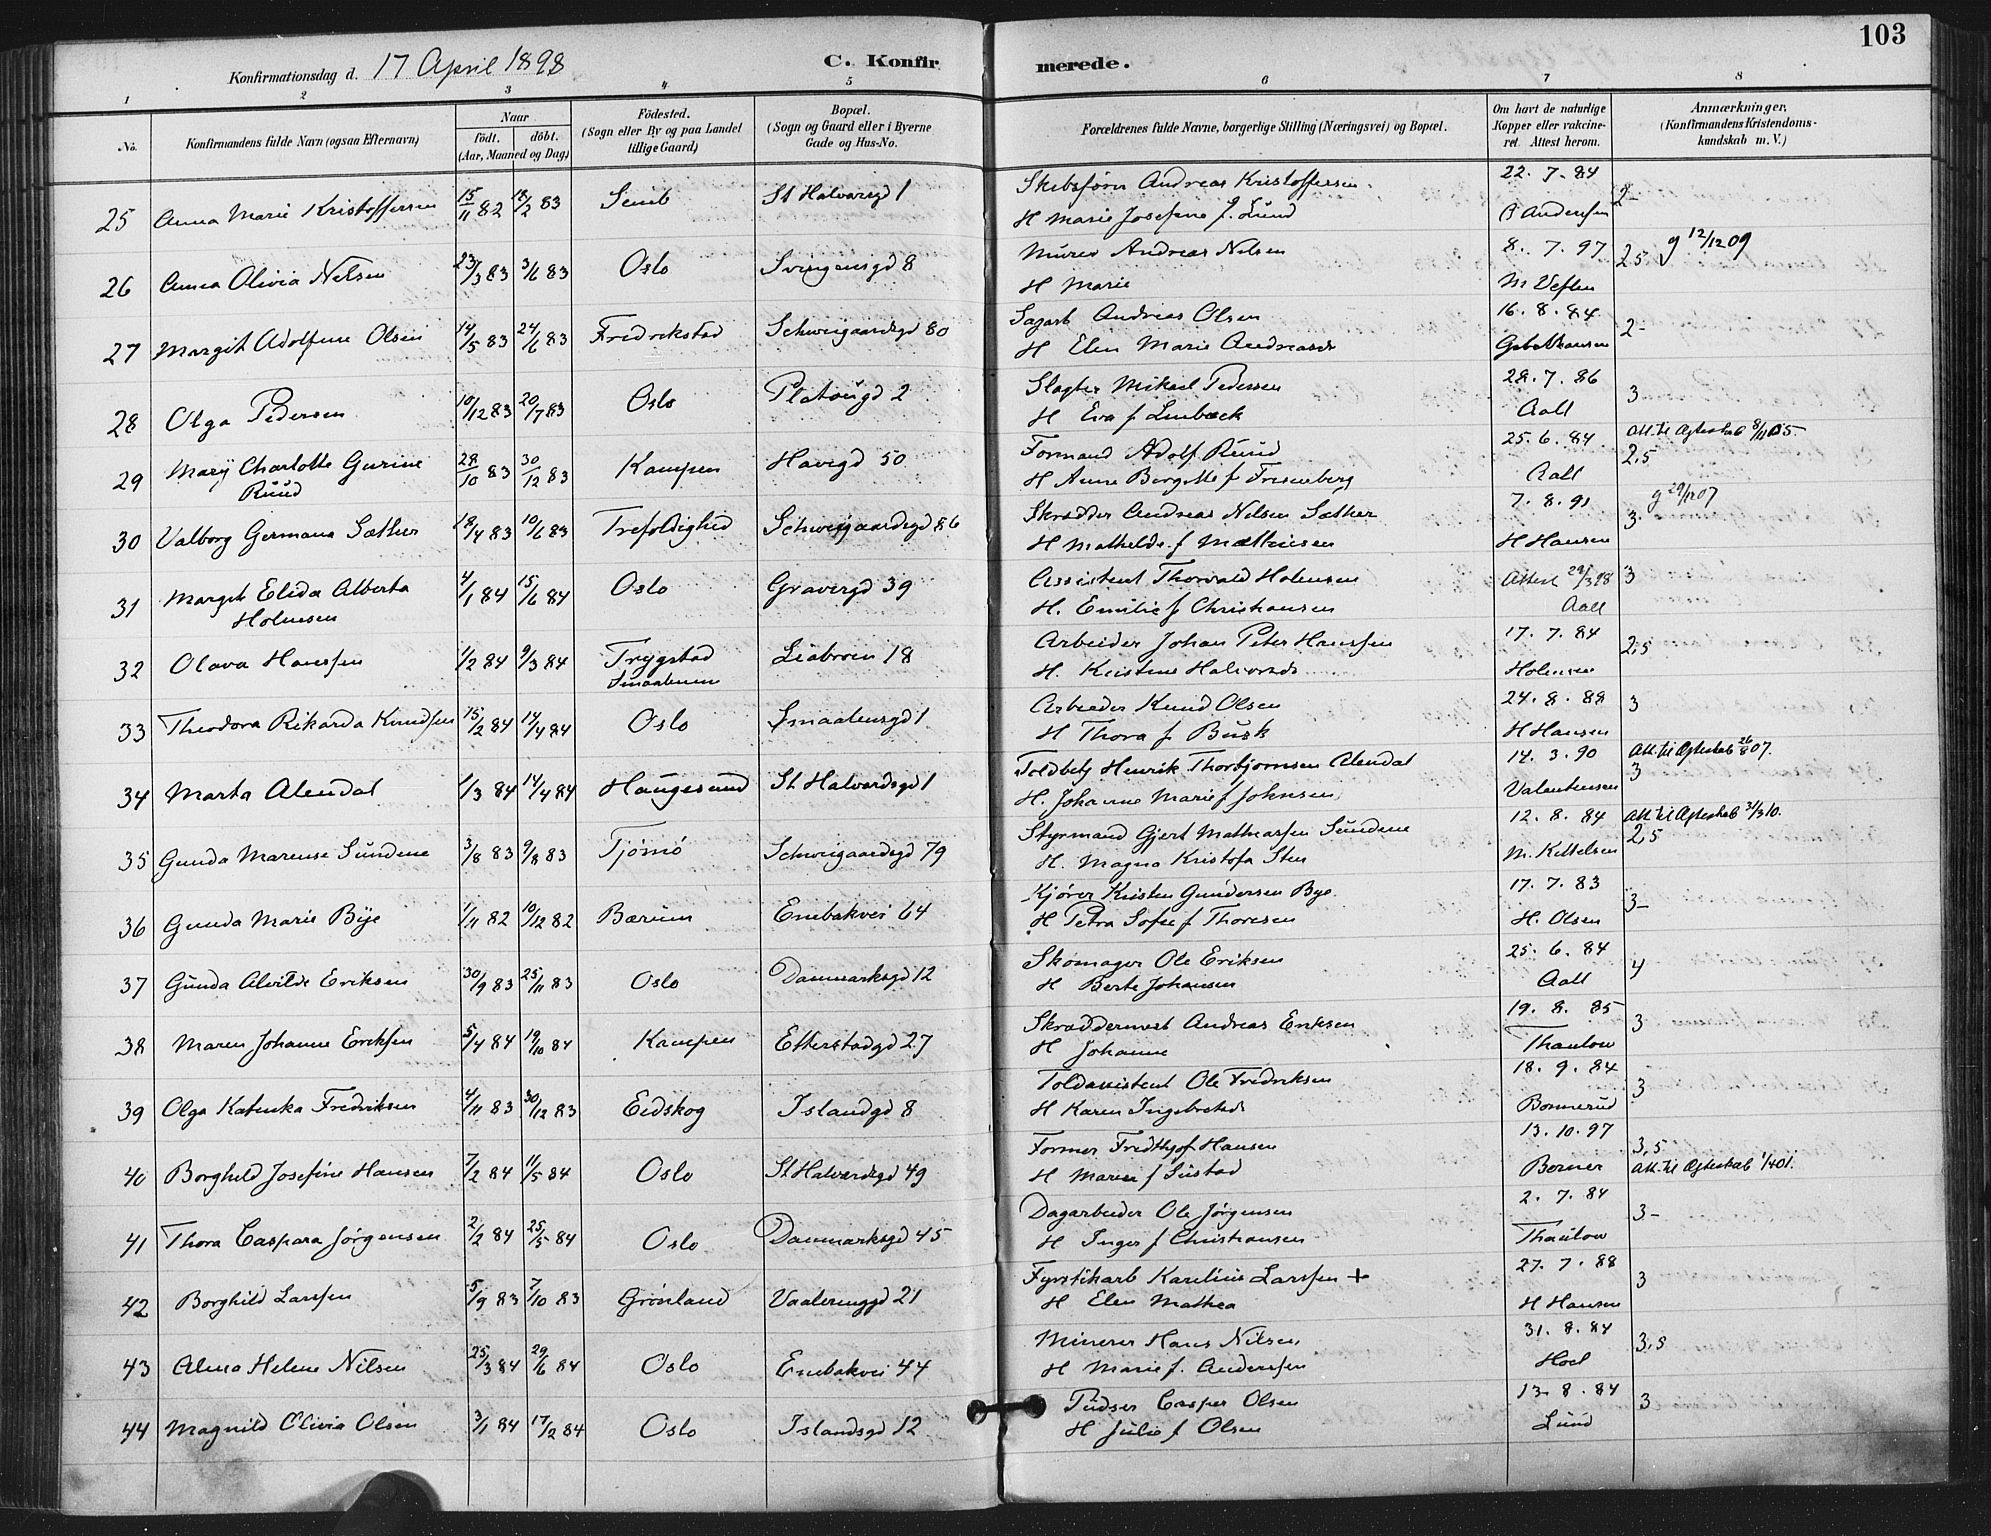 103
Konfirmationsdag d. 17 April 1898 C. Konfirmerede.
1 2 3 4 5 6 7 8
No. Konfirmandens fulde Navn (ogsaa Efternavn) Naar født. døbt. (Aar, Maaned og Dag) Fødested. (Sogn eller By og paa Landet tillige Gaard) Bopæl. (Sogn og Gaard eller i Byerne Gade og Hus-No. Forældrenes fulde Navne, borgerlige Stilling (Næringsvei) og Bopæl. Om havt de naturlige Kopper eller vakcineret. Attest herom. Anmærkninger. (Konfirmandens Kristendomskundskab m. V.)
25 Anna Marie Kristoffersen 15/11 82 18/2 83 St Halvardsgd 1 Skibsfører Andreas Kristoffersen 22. 7. 84 2-
H Marie Josefine f. Lund Andersen
26 Anna Olivia Nilsen 23/3 83 3/6 83 Oslo Svingensgd 8 Murer Andreas Nilsen 8. 7. 97 2,5 g 12/12 09
H Marie
27 Margit Adolfine Olsen 14/5 83 24/6 83 Fredrikstad Schweigaardsgd 80 Sagarb Andreas Olsen 16. 8. 84 2-
H Elen Marie Andreasd
28 Olga Pedersen 10/12 83 20/7 83 Oslo Platougd 2 Slagter Mikael Pedersen 28. 7. 86 3
H Eva f Lindbæck Aall
29 Mary Charlotte Gurine Ruud 28/10 83 30/12 83 Kampen Havegd 50 Formand Adolf Ruud 25. 6. 84 Att. til Ægteskab 8/11 05. 2,5
H Anne Borgitte f Frisenberg Aall
30 Valborg Germana Sæther 18/4 83 10/6 83 Trefoldighed Schweigaardsgd 86 Skrædder Andreas Nilsen Sæther 7. 8. 91 3 g 29/12 07
H Mathelde f Mathiesen H Hansen
31 Margit Elida Alberta Holmsen 4/1 84 15/6 84 Oslo Gravergd 39 Assistent Thorvald Holmsen Attest 29/3 98 3
H. Emilie f Christiansen Aall
32 Olava Hanssen 1/2 84 9/3 84 Trygstad Smaalenene Liabroen 18 Arbeider Johan Peter Hanssen 17. 7. 84 2,5
H. Kristine Halvorsd Holmsen
33 Theodora Rikarda Knudsen 15/2 84 14/4 84 Oslo Smaalensgd 1 Arbeider Knud Olsen 24. 8. 88 3
H Thora f Busk H Hansen
34 Marta Alendal 1/3 84 14/4 84 Haugesund St Halvardsgd 1 Toldbetj Henrik Thorbjørnsen Alendal 14. 3. 90 Att. til Ægteskab 26/8 07. 3
H. Johanne Marie f Johnsen Valentinsen
35 Gunda Marense Sundene 3/8 83 9/8 83 Tjømø Schweigaardsgd 79 Styrmand Gjert Mathiassen Sundene 12. 8. 84 Att. til Ægteskab 31/3 10. 2,5
H. Magna Kristofa Sten M. Kittelsen
36 Gunda Marie Bye 1/11 82 10/12 82 Bærum Enebakvei 64 Kjører Kristen Gundersen Bye 17. 7. 83 3-
H Petra Sofie f Thoresen H. Olsen
37 Gunda Alvilde Eriksen 30/9 83 25/11 83 Oslo Danmarksgd 12 Skomager Ole Eriksen 25. 6. 84 4
H Berte Johansen Aall
38 Maren Johanne Eriksen 5/4 84 19/10 84 Kampen Etterstadgd 27 Skræddermest Andreas Eriksen 19. 8. 85 3
H Johanne Thaulow
39 Olga Katinka Fredriksen 4/11 83 30/12 83 Eidskog Islandgd 8 Toldassistent Ole Fredriksen 18. 9. 84 3
H Karen Ingebretsd Bonnerud
40 Borghild Josefine Hansen 7/2 84 11/5 84 Oslo St Halvardsgd 49 Former Fredthjof Hansen 13. 10. 97 3,5
H Maren f Sustad Borner Att. til Ægteskab 1/4 01.
41 Thora Caspara Jørgensen 2/2 84 25/5 84 Oslo Danmarksgd 45 Dagarbeider Ole Jørgensen 2. 7. 84 3-
H Inger f Christiansen Thaulow
42 Borghild Larssen 5/9 83 7/10 83 Grønland Vaalerenggd 21 Fyrstikarb Karelius Larssen + 27. 7. 88 3
H Elen Mathea H Hansen
43 Alma Helene Nilsen 25/3 84 29/6 84 Oslo Enebakvei 44 Minerer Hans Nilsen 31. 8. 84 3,5
H Marie f. Anderssen Hoel
44 Magnild Olivia Olsen 3/1 84 17/2 84 Oslo Islandsgd 12 Pudser Casper Olsen 13. 8. 84 3
H Julie f Olsen Lund